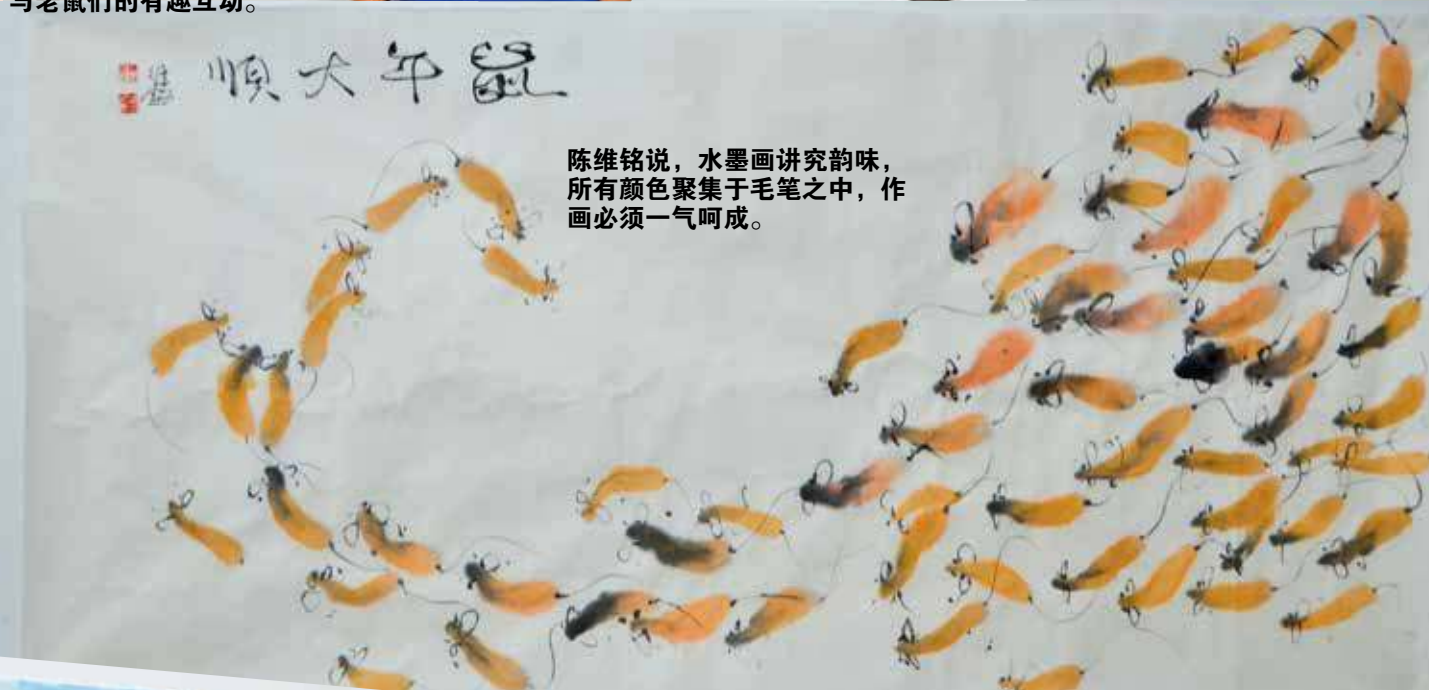 与老鼠们的有趣互动。
鼠年大順
陈维铭说，水墨画讲究韵味，
所有颜色聚集于毛笔之中，作
画必须一气呵成。